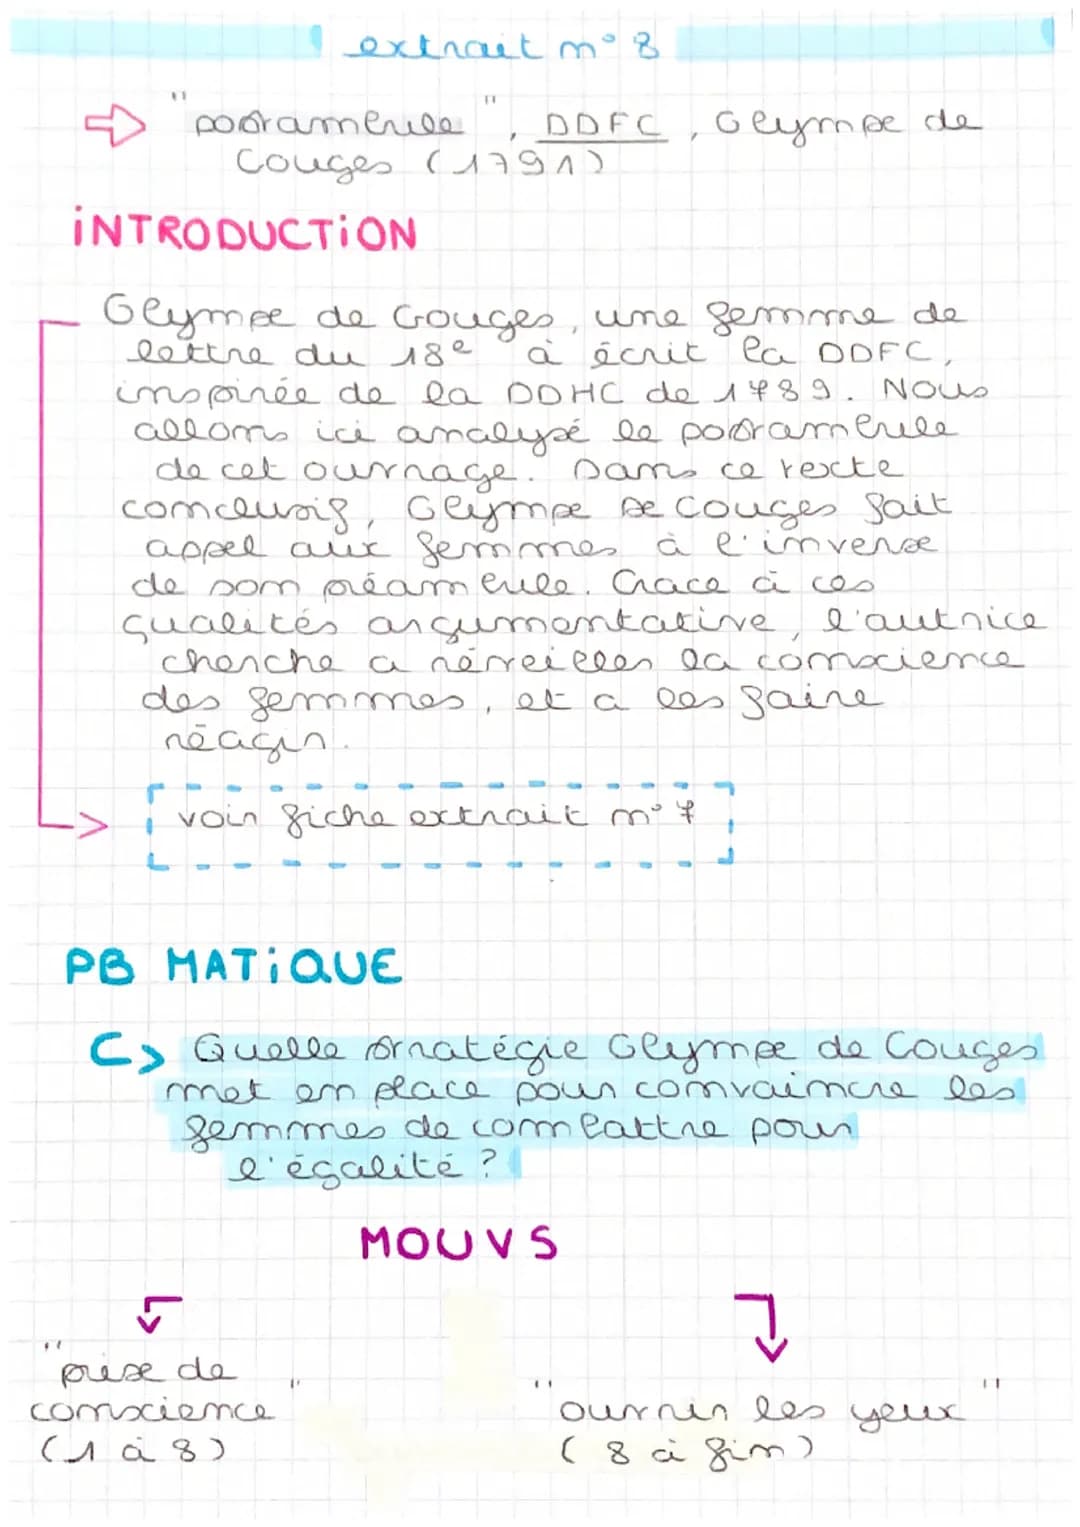 extrait n° 8
"postambule", DDFC, Olympe de
Gouges (1791)
INTRODUCTION
Olympe de Gouges, une femme de
lettre du 18e à écrit la DDFC,
inspirée de la DDHC de 1789. Nous
allons ici analysé le postambule
de cet ouvrage. Dans ce texte
conclusif, Olympe de Gouges fait
appel aux femmes à l'inverse
de son préambule. Grace à ces
qualités argumentative, l'autrice
cherche a réveiller la conscience
des femmes, et a les faire
réagir.
voir fiche extrait n° 7
PB MATIQUE
Quelle stratégie Olympe de Gouges
met en place pour convaincre les
femmes de combattre pour
l'égalité ?
MOUVS
"prise de
conscience"
(1 à 8)
"ouvrir les yeux"
(8 à fin)